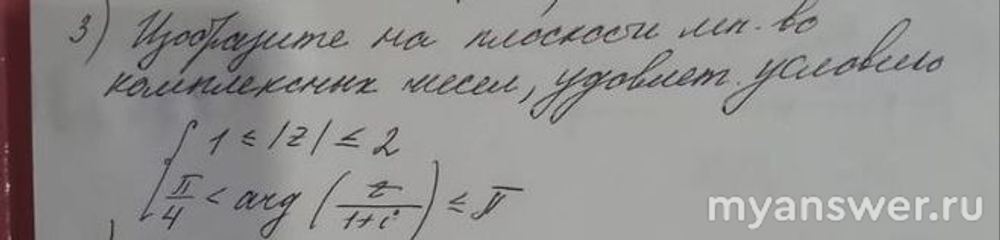 3) Изобразите на плоскости мн-во
комплексных чисел, удовлет. условию
1 ≤ |z| ≤ 2
π/4 < arg (z/(1+i)) ≤ π
myanswer.ru